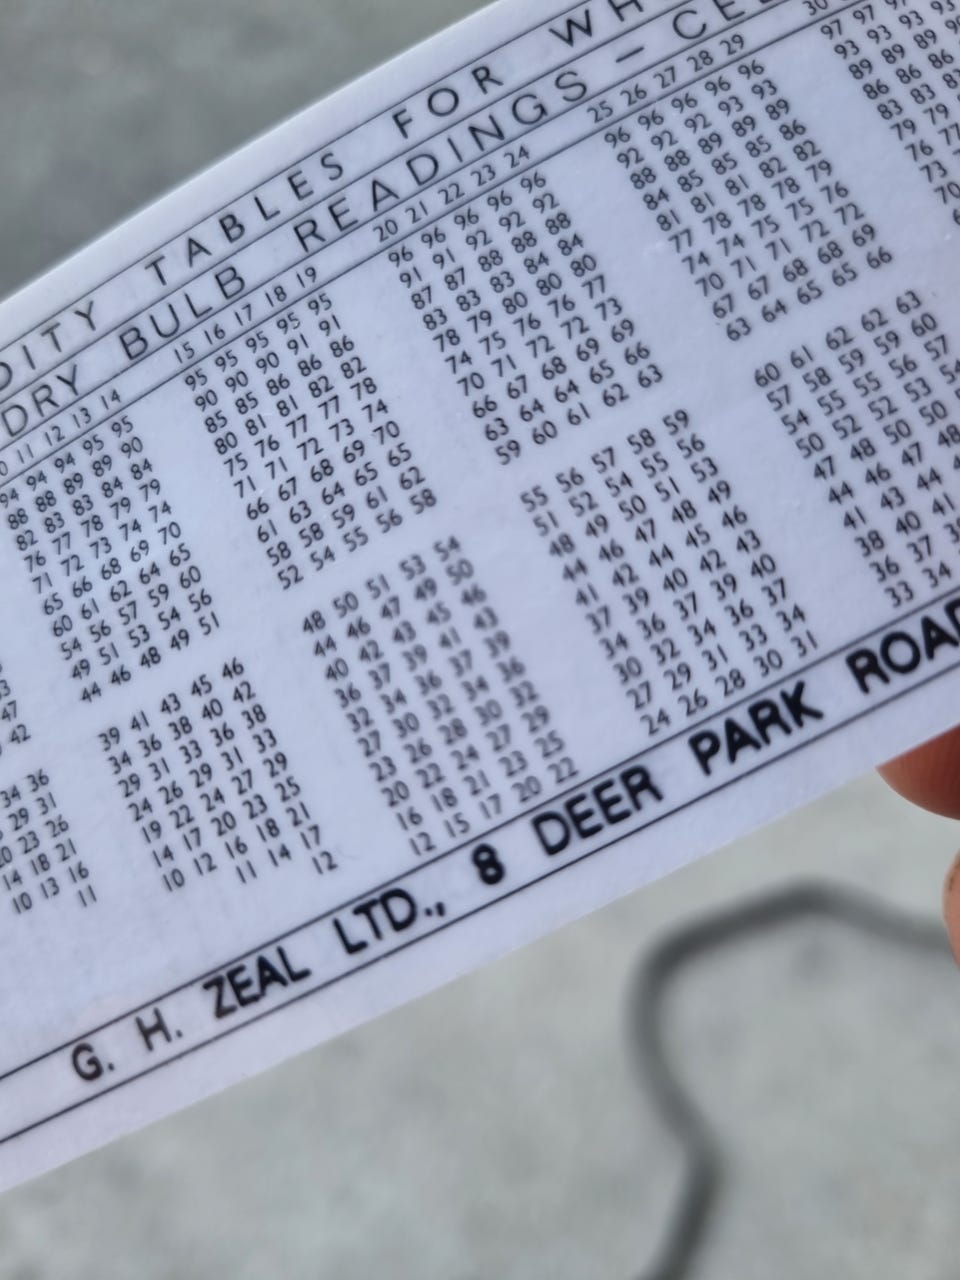 DITY TABLES FOR
DRY BULB READINGS –
11 12 13 14 15 16 17 18 19 20 21 22 23 24 25 26 27 28 29 30
94 94 94 95 95 95 95 95 95 95 96 96 96 96 96 96 96 96 96 96 97 97 97
88 88 89 89 90 90 90 90 91 91 91 91 92 92 92 92 92 92 93 93 93 93 93 93
82 83 83 84 84 85 85 86 86 86 87 87 88 88 88 88 88 89 89 89 89 89 89
76 77 78 79 79 80 81 81 82 82 83 83 83 84 84 84 85 85 85 86 86 86 86
71 72 73 74 74 75 76 77 77 78 78 79 80 80 80 81 81 81 82 82 83 83
65 66 68 69 70 71 71 72 73 74 74 75 76 76 77 77 78 78 78 79 79 79
60 61 62 64 65 66 67 68 69 70 70 71 72 72 73 74 74 75 75 76 76 77
54 56 57 59 60 61 63 64 65 65 66 67 68 69 69 70 71 71 72 72 73
49 51 53 54 56 58 58 59 61 62 63 64 64 65 66 67 67 68 68 69 70
44 46 48 49 51 52 54 55 56 58 59 60 61 62 63 63 64 65 65 66
34 36 39 41 43 45 46 48 50 51 53 54 55 56 57 58 59 60 61 62 62 63
29 31 34 36 38 40 42 44 46 47 49 50 51 52 54 55 56 57 58 59 59 60
20 23 26 29 31 33 36 38 40 42 43 45 46 48 49 50 51 53 54 55 55 56 57
14 18 21 24 26 29 31 33 36 37 39 41 43 44 46 47 48 49 50 52 52 53
10 13 16 19 22 24 27 29 32 34 36 37 39 41 42 44 45 46 47 48 50 50
11 14 17 20 23 25 27 30 32 34 36 37 39 40 42 43 44 46 47 48
10 12 16 18 21 23 26 28 30 32 34 36 37 39 40 41 43 44
11 14 17 20 22 24 27 29 30 32 34 36 37 38 40 41
12 16 18 21 23 25 27 29 31 33 34 36 37
12 15 17 20 22 24 26 28 30 31 33 34
G. H. ZEAL LTD., 8 DEER PARK ROAD